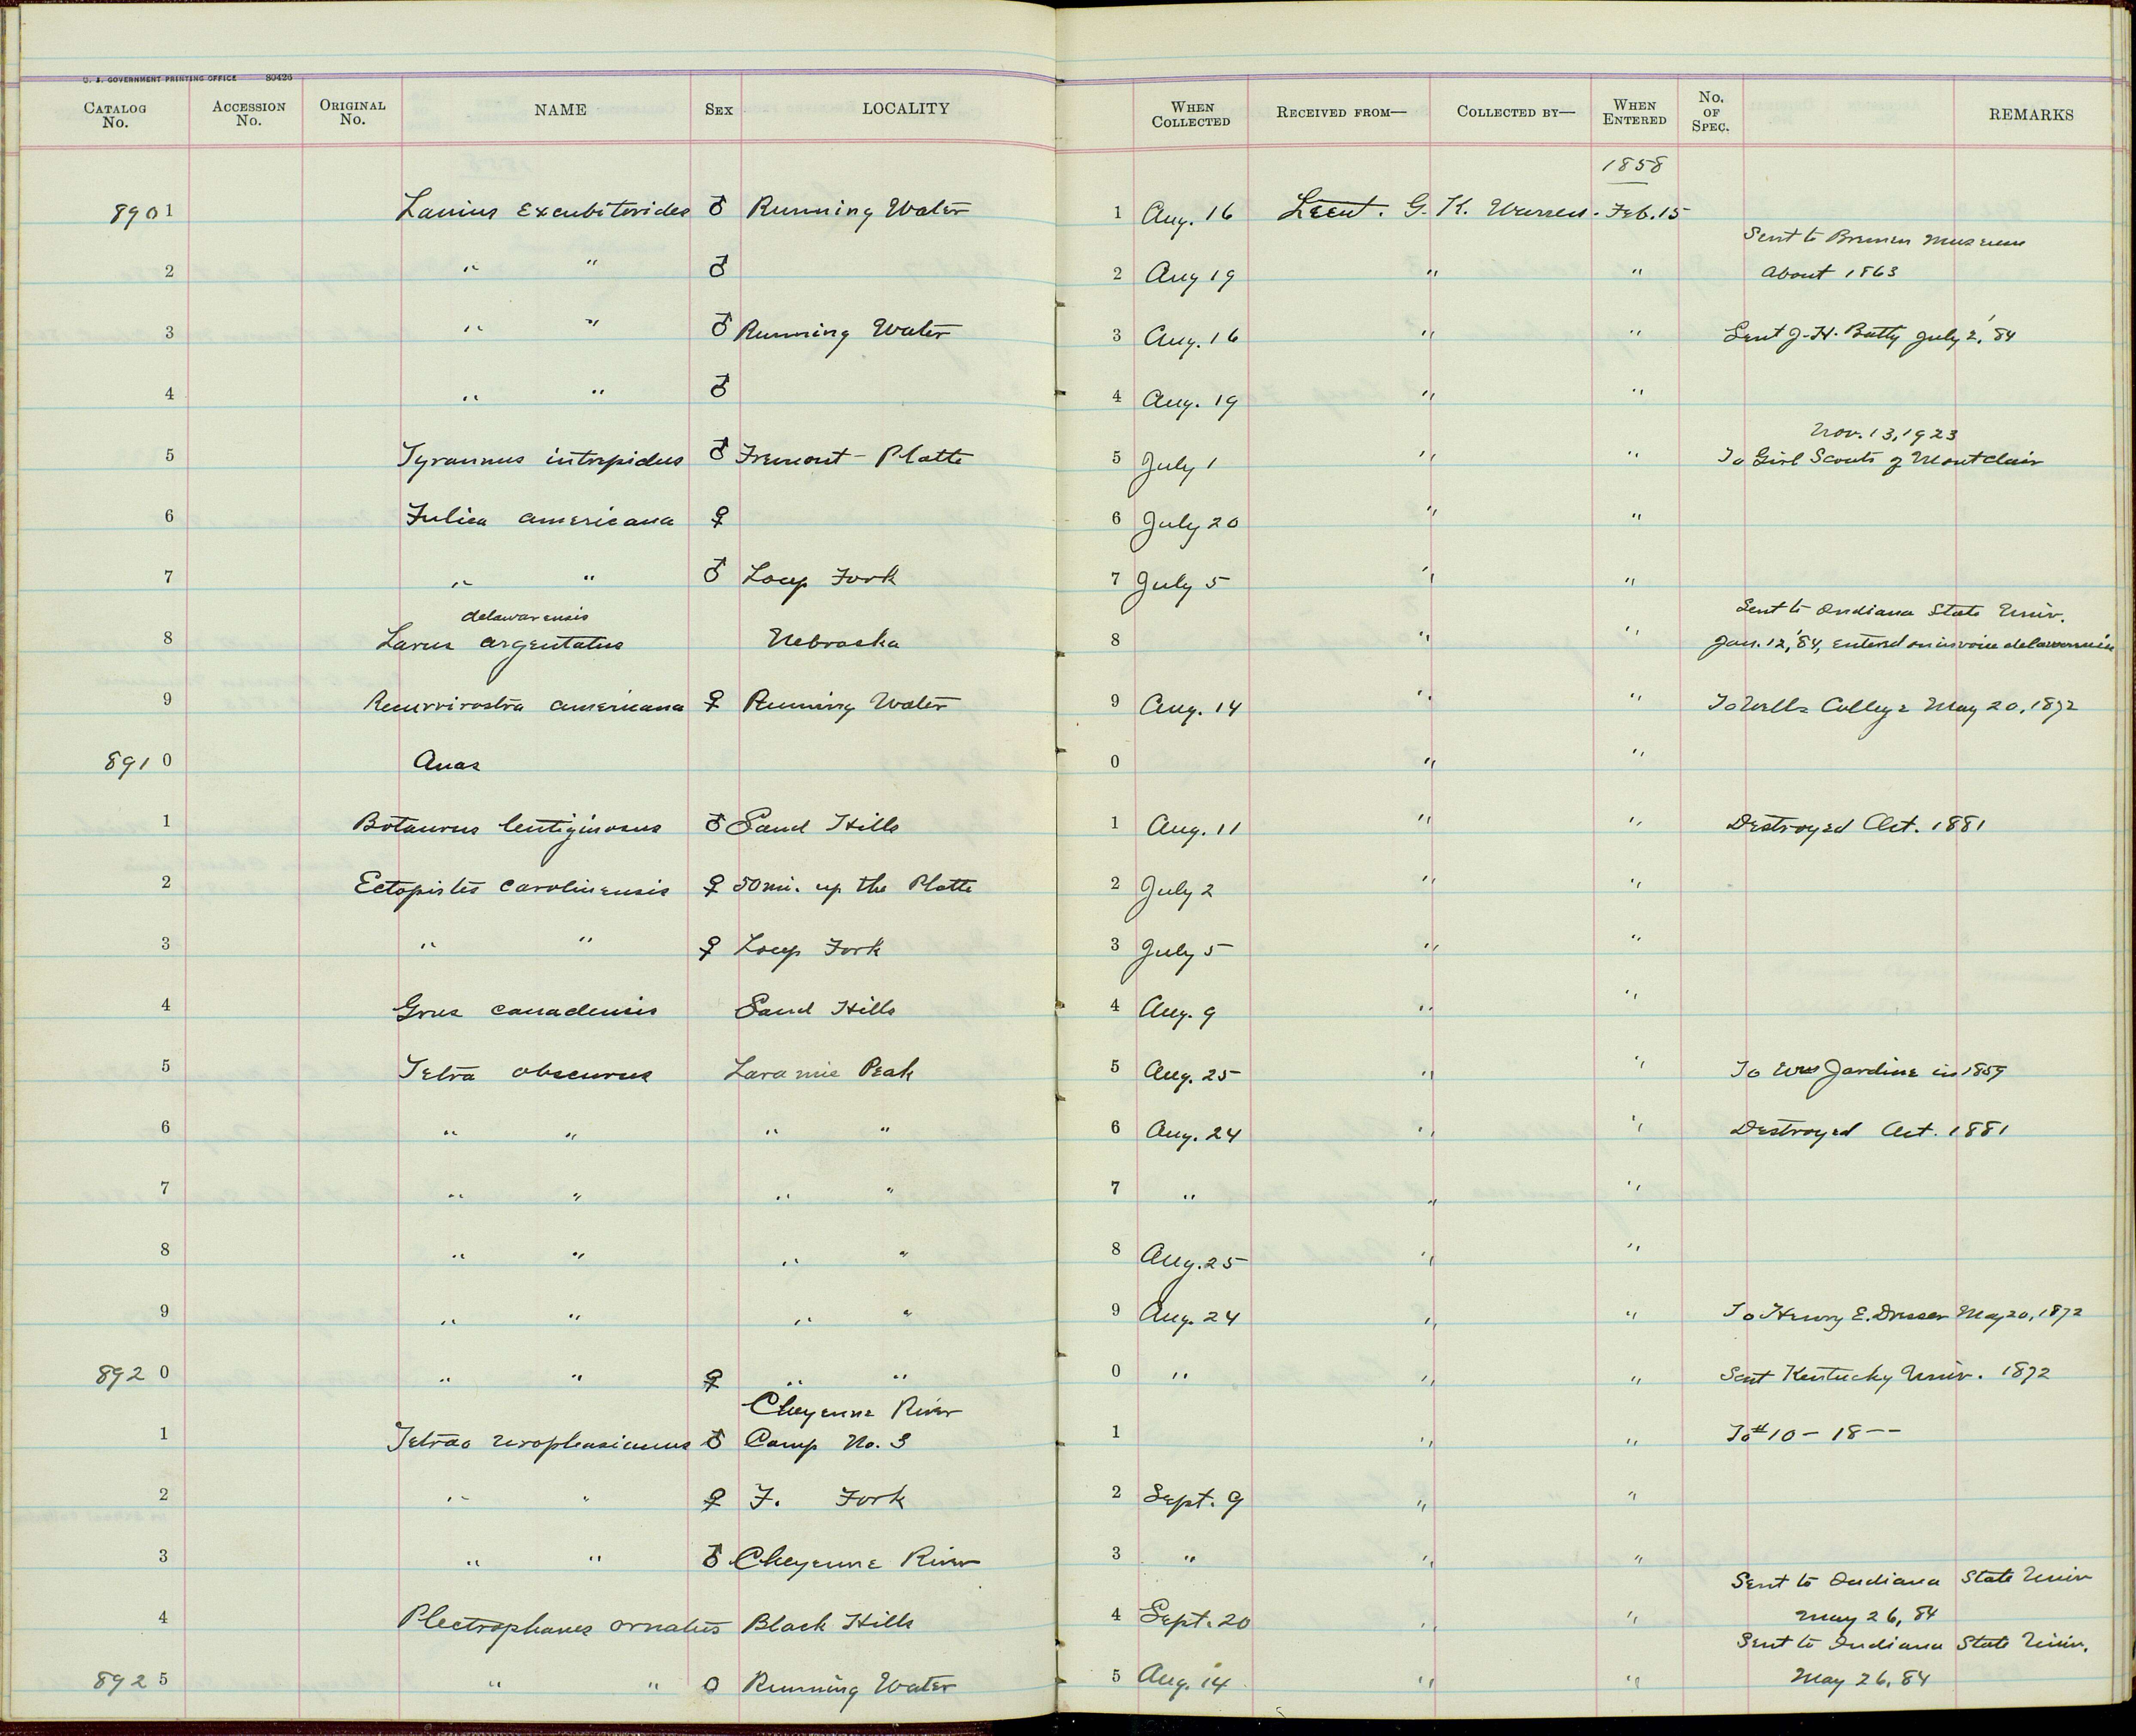 U. S. GOVERNMENT PRINTING OFFICE 80426
CATALOG No. ACCESSION No. ORIGINAL No. NAME SEX LOCALITY WHEN COLLECTED RECEIVED FROM— COLLECTED BY— WHEN ENTERED No. OF SPEC. REMARKS
1858
8901 Lanius Excubitorides ♂ Running Water 1 Aug. 16 Lieut. G. K. Warren. Feb. 15
Sent to Bremen Museum
2 " " ♂ 2 Aug 19 " " About 1863
3 " " ♂ Running Water 3 Aug. 16 " " Sent J. H. Batty July 2, '84
4 " " ♂ 4 Aug. 19 " "
Nov. 13, 1923
5 Tyrannus intrepidus ♂ Fremont - Platte 5 July 1 " " To Girl Scouts of Montclair
6 Fulica americana ♀ 6 July 20 " "
7 " " ♂ Loup Fork 7 July 5 " "
delawarensis Sent to Indiana State Univ.
8 Larus argentatus Nebraska 8 " " Jan. 12, '84, entered on invoice delawarensis
9 Recurvirostra americana ♀ Running Water 9 Aug. 14 " " To Wells College May 20, 1872
8910 Anas 0 " "
1 Botaurus lentiginosus ♂ Sand Hills 1 Aug. 11 " " Destroyed Oct. 1881
2 Ectopistes carolinensis ♀ 50 mi. up the Platte 2 July 2 " "
3 " " ♀ Loup Fork 3 July 5 " "
4 Grus canadensis Sand Hills 4 Aug. 9 " "
5 Tetra obscurus Laramie Peak 5 Aug. 25 " " To Wm Jardine in 1859
6 " " " " 6 Aug. 24 " " Destroyed Oct. 1881
7 " " " " 7 " " "
8 " " " " 8 Aug. 25 " "
9 " " " " 9 Aug. 24 " " To Henry E. Dresser May 20, 1872
8920 " " ♀ " " 0 " " " Sent Kentucky Univ. 1872
Cheyenne River
1 Tetrao urophasianus ♂ Camp No. 3 1 " " To # 10 - 18 --
2 " " ♀ F. Fork 2 Sept. 9 " "
3 " " ♂ Cheyenne River 3 " " "
Sent to Indiana State Univ
4 Plectrophanes ornatus Black Hills 4 Sept. 20 " " May 26, 84
Sent to Indiana State Univ.
8925 " " O Running Water 5 Aug. 14 " " May 26, 84